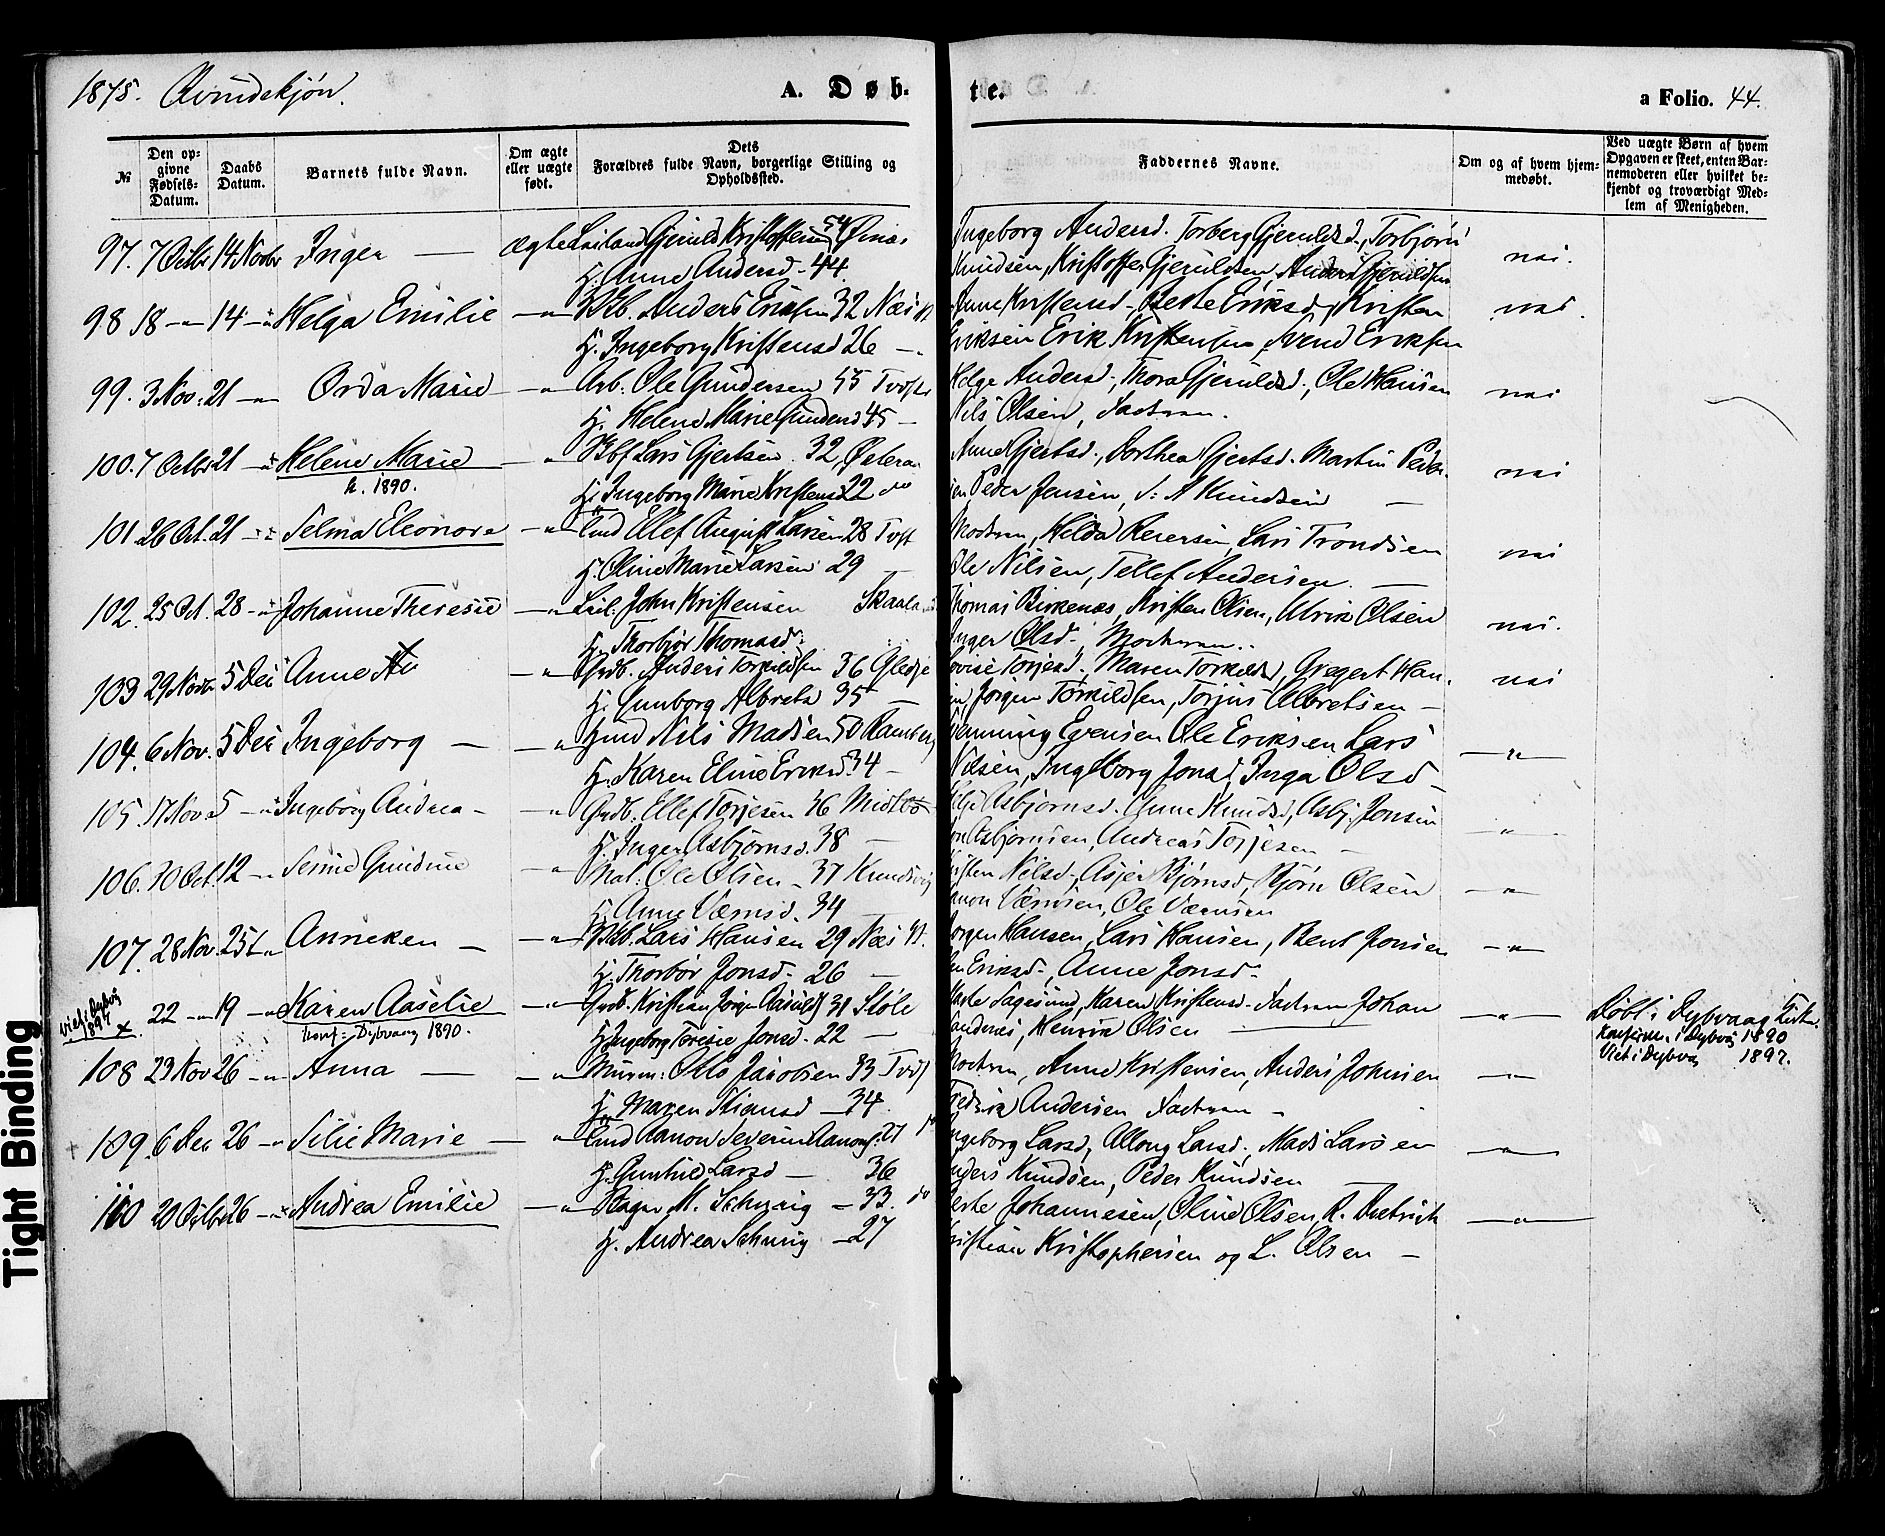 1875. Qvindekjøn.
A. Døb-
te.
a Folio. 44.
№
Den op-
givne
Fødsels-
Datum.
Daabs
Datum.
Barnets fulde Navn.
Om ægte
eller uægte
født.
Dets
Forældres fulde Navn, borgerlige Stilling og
Opholdssted.
Faddernes Navne.
Om og af hvem hjem-
medøbt.
Ved uægte Børn af hvem
Opgaven er skeet, enten Bar-
nemoderen eller hvilket be-
kjendt og troværdigt Med-
lem af Menigheden.
97. 7 Octbr 14 Novbr Inger — ægte Gjeruld Kristoffersen 54
H. Anne Andersd - 44
Ingeborg Andersd. Torberg Gjeruldsd., Torbjørn
Knudsen, Kristoffer Gjeruldsen, Anders Gjeruldsen
nei.
98 18 -"- 14 -"- Helga Emilie -"- Anders Eriksen 32 Næs
H. Ingeborg Kristensd 26 -
Anne Kristensd - Berte Eriksd, Kristen
Eriksen Erik Kristensen, Svend Eriksen
nei.
99. 3 Nov. 21 -"- Orda Marie -"- Arb. Ole Gundersen 55
H. Helene Marie Gundersd 45 -
Helge Andersd., Thora Gjeruldsd., Ole Hansen
Nils Olsen, Faderen.
nei
100. 7 Octbr 21 -"- Helene Marie -"- Lars Gjertsen. 32,
k. 1890.
H. Ingeborg Marie Kristensd 22 do
Anne Gjertsd., Dorthea Gjertsd. Martin Peder-
sen Peder Jensen, Knudsen —
nei
101 26 Oct. 21 -"- Selma Eleonora -"- Ellef August Larsen 28 Tvst
H. Oline Marie Larsen 29 -
Modren, Helda Lars Trondsen
Ole Nilsen, Tellef Andersen. —
nei
102. 25 Oct. 28 -"- Johanne Theresie -"- John Kristensen
H. Thorbjør Thomasd.
Thomas Birkenæs, Kristen Olsen, Ulrik Olsen
Inger Olsd., Modren.
nei.
103 29 Novbr 5 Dec Anne -"- Grdb. Anders Torkildsen 36 Gjedje
H. Gunborg Albretsd 35 -
Torjersd. Maren Torkildsd, Gregert Han-
sen, Jørgen Torkildsen, Torjus Albretsen -
nei
104. 6 Nov. 5 Dec Ingeborg — -"- Nils Madsen 50
H. Karen Eline Eriksd 34 -
Henning Evensen Ole Eriksen Lars
Nilsen, Ingeborg Jonsd, Inga Olsd -
-"-
105. 17 Nov 5 -"- Ingeborg Andrea - -"- Grdb. Ellef Torjesen 36 Midtbø
H. Inger Asbjørnsd. 38 -
Asbjørnsd. Anne Knudsd, Asbj. Jonsen
Asbjørnsen, Andreas Torjesen -
-"-
106. 30 Oct. 12 -"- Serine Gundine -"- Mat. Ole Olsen - 37
H. Anne Værnsd. 34 —
Nilsd. Asjer Bjørnsd, Bjørn Olsen
Værnsen, Ole Værnsen
-"-
107. 28 Nov. 25 -"- Anneken - -"- Lars Hansen 29 Næs
H. Thorbør Jonsd. 26 —
Jørgen Hansen, Lars Hansen, Bent Jonsen
Eriksd., Anne Jonsd.
-"-
viet i Dybvåg
1897 x 22 -"- 19 -"- Karen Aaselie -"- Grdb. Kristian Jørgen Aasulds 31 Støle
Konf: Dybvaag 1890.
H. Ingeborg Teresie Jonsd. 22 —
Sagesund, Karen Kristensd. Faderen Johan
Sandnes, Henrik Olsen —
-"-
Døbt i Dybvaag Kirke.
Konfirm. i Dybvåg 1890
Viet i Dybvåg 1897.
108 23 Nov 26 -"- Anna — -"- Murm: Otto Jacobsen 33
H. Maren Stiansd - 34.
Modren, Anne Kristensen, Anders Johnsen
Andersen Faderen -
-"-
109. 6 Dec 26 -"- Silie Marie — " Aanon Severin Aanons. 27
H. Gunhild Larsd — 36
Ingeborg Larsd, Larsd. Mads Larsen
Anders Knudsen, Peder Knudsen —
-"-
110 20 Octbr 26 -"- Andrea Emilie -"- Bager M. Schurig - 33. do
H. Andrea Schurig - 27
Berte Johannesen, Oline Olsen, R. Dietrich
Kristian Kristophersen og L. Olsen -
-"-
Tight Binding